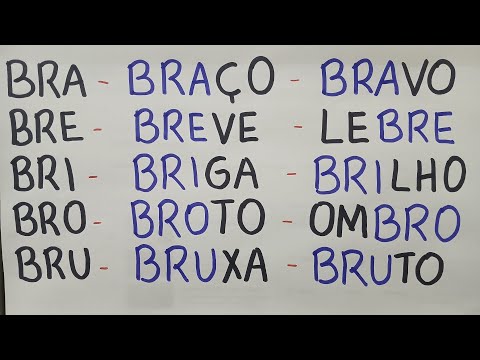 BRA - BRAÇO - BRAVO
BRE - BREVE - LEBRE
BRI - BRIGA - BRILHO
BRO - BROTO - OMBRO
BRU - BRUXA - BRUTO